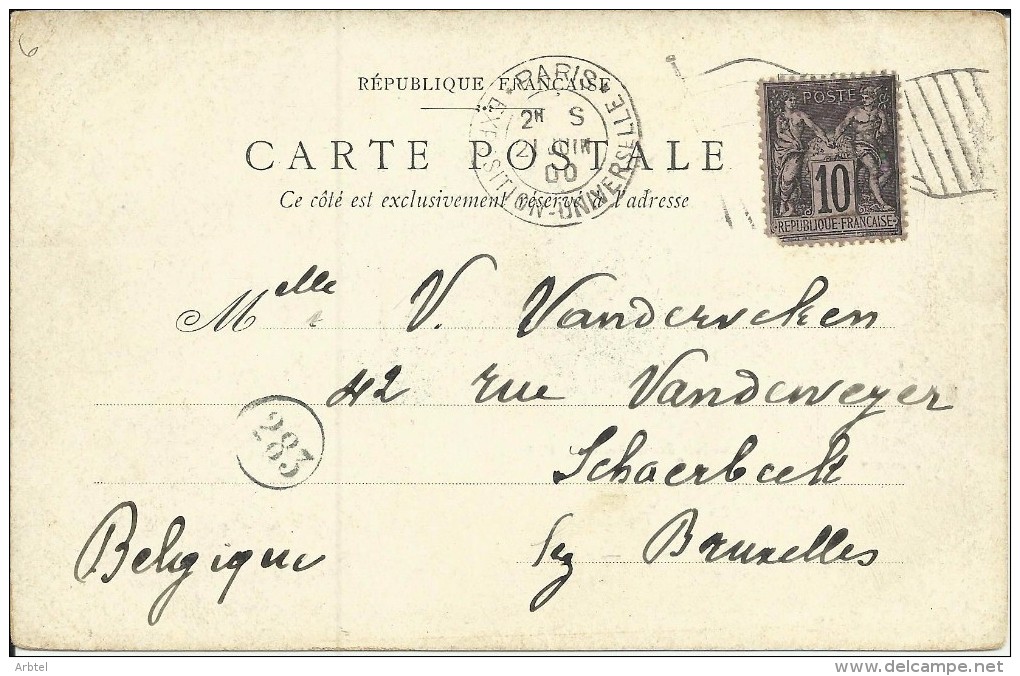 6
RÉPUBLIQUE FRANÇAISE
PARIS
EXPOSITION-UNIVERSELLE
2H S
21 JUIN
00
POSTE
10
RÉPUBLIQUE-FRANÇAISE
CARTE POSTALE
Ce côté est exclusivement réservé à l'adresse
Melle V. Vanderveken
42 rue Vandeweyer
283
Schaerbeek
Belgique lez-Bruxelles
Arbtel
http://www.delcampe.net